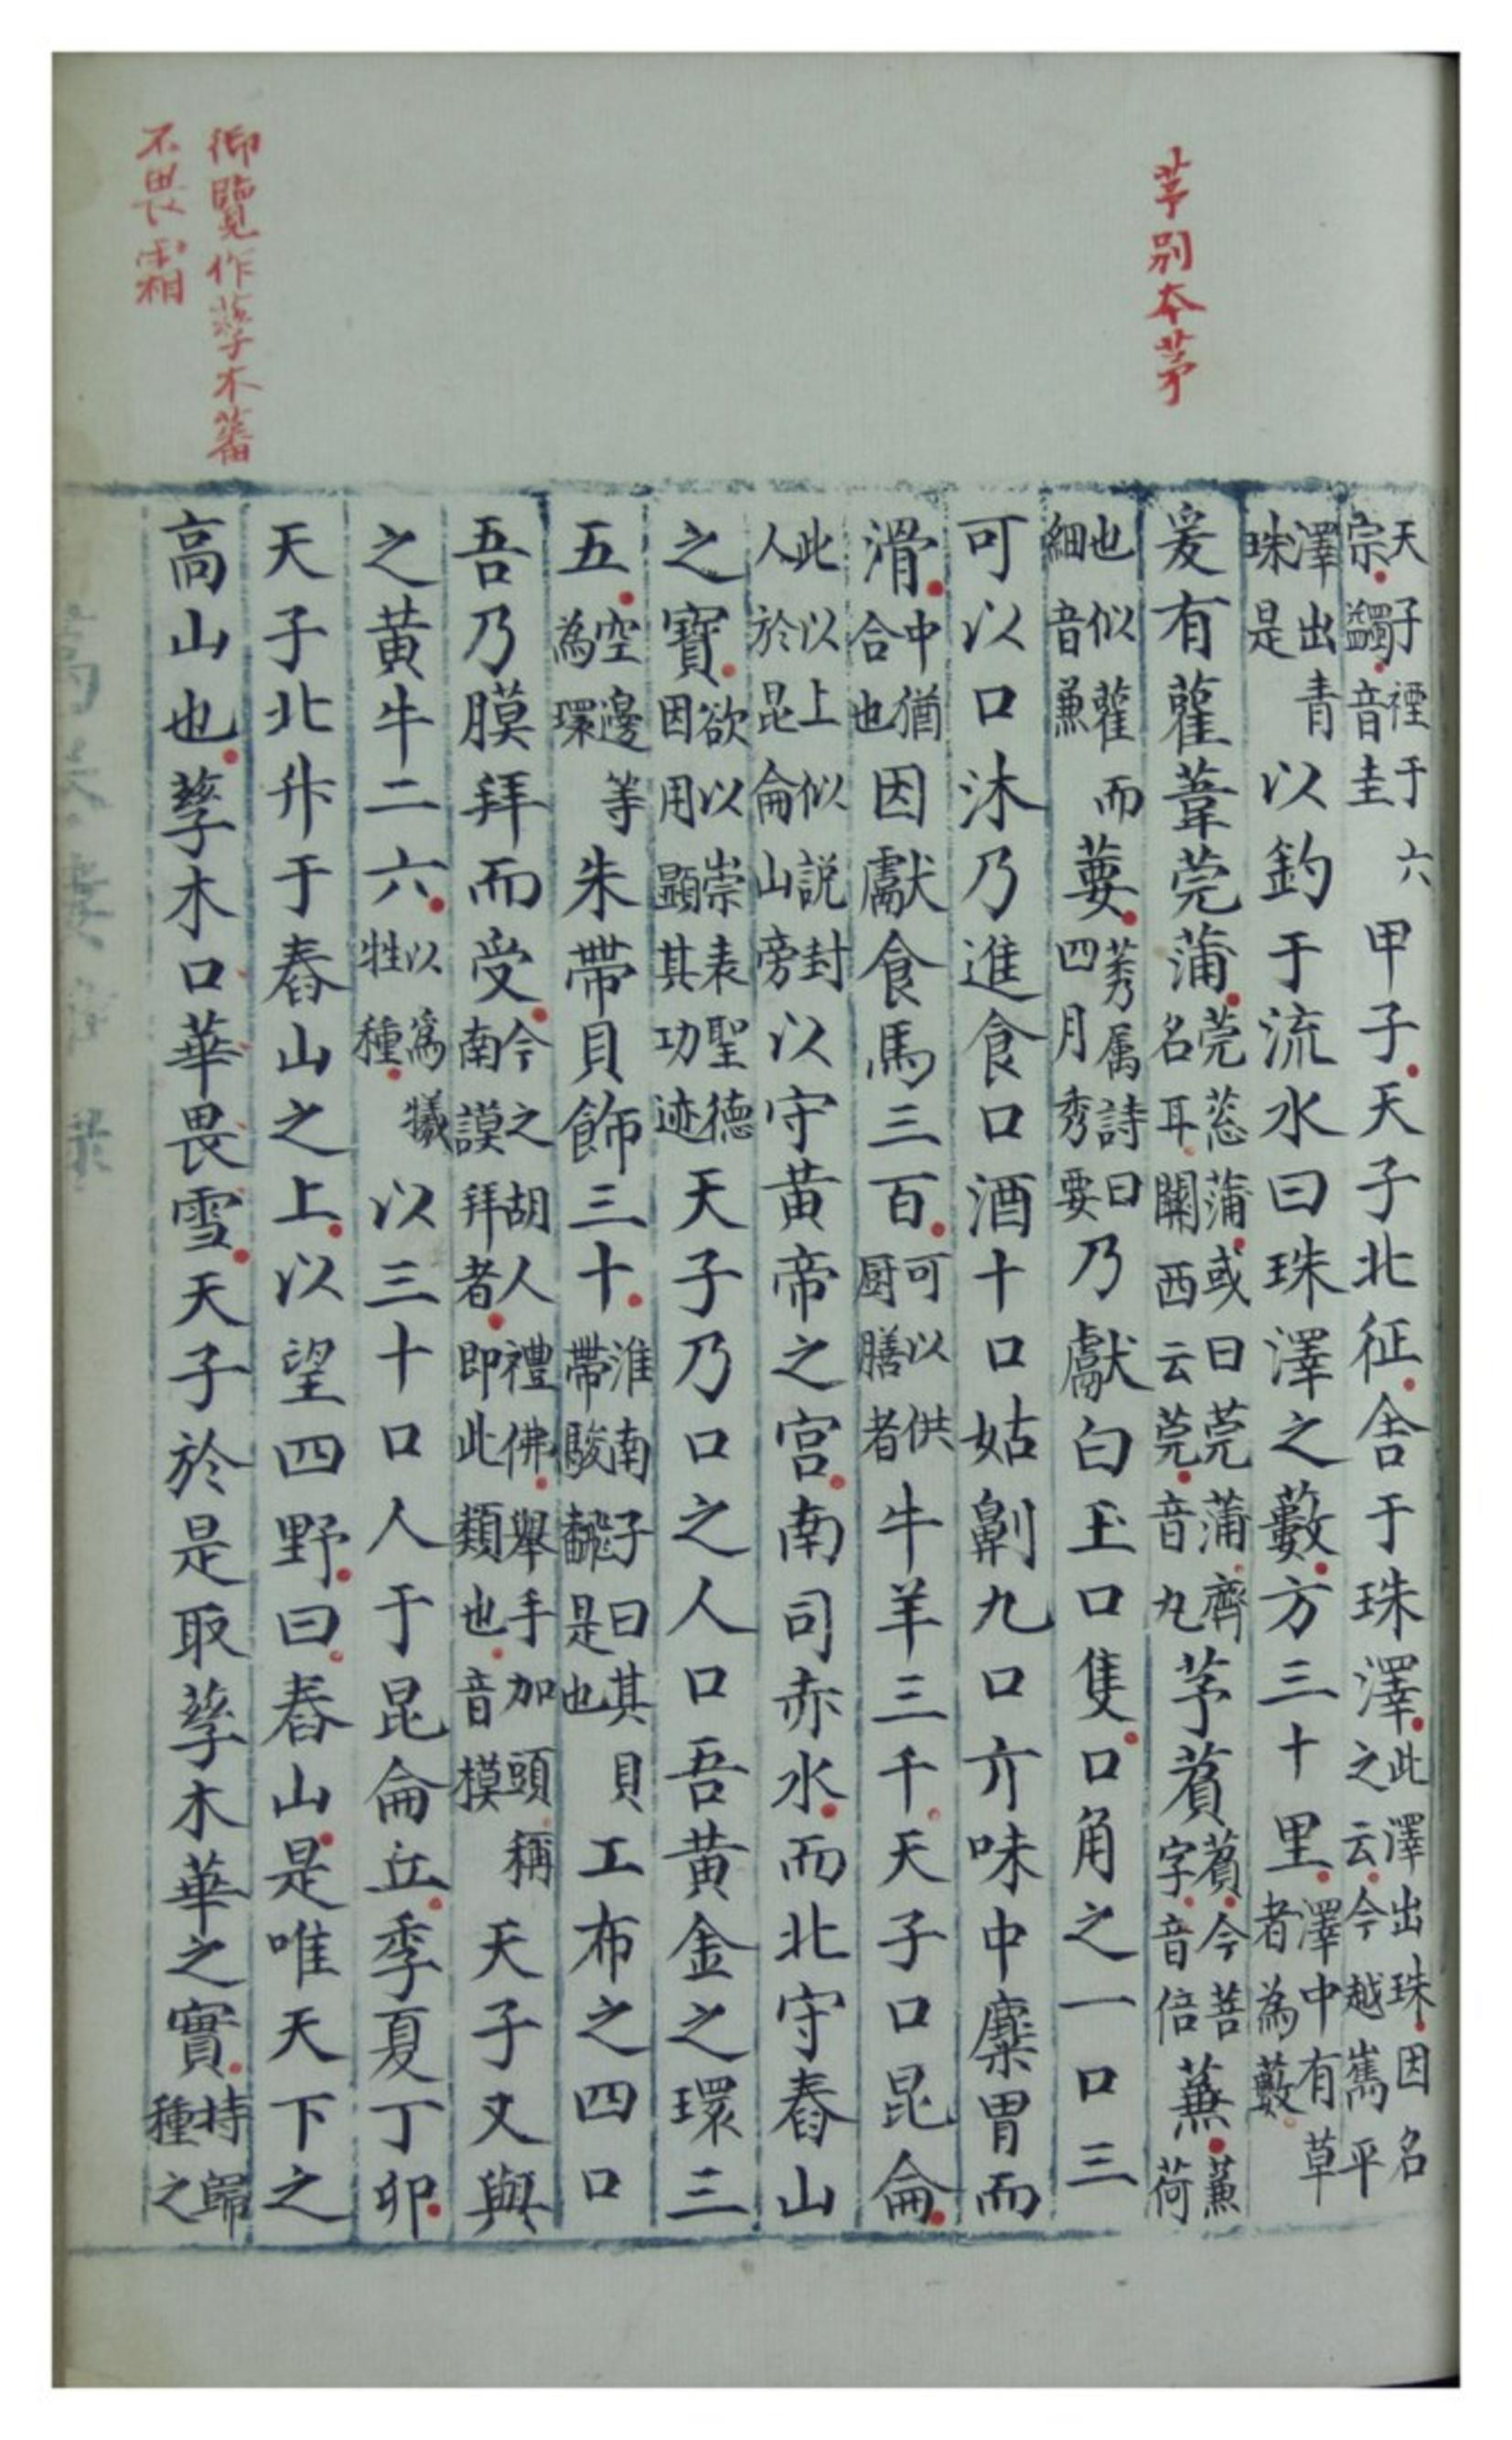 芧別本茅
御覽作孳木蕃
不畏霜
天子禋于六宗蠲音圭甲子天子北征舍于珠澤此澤出珠因名之云今越嶲平
澤出青珠是以釣于流水曰珠澤之藪方三十里澤中有草者為藪
爰有雚葦莞蒲莞蒠蒲或曰莞蒲齊名耳關西云莞音丸芧萯萯今菩字音倍蒹蒹荷
也似雚而細音兼葽莠属詩曰四月秀葽乃獻白玉口隻口角之一口三
可以口沐乃進食口酒十口姑劓九口亣味中麋胃而
滑中猶合也因獻食馬三百可以供厨膳者牛羊三千天子口昆侖
此以上似説封人於昆侖山旁以守黃帝之宮南司赤水而北守舂山
之寶欲以崇表聖德因用顯其功迹天子乃口之人口吾黃金之環三
五空邊等為環朱帶貝飾三十淮南子曰其貝帶駿翿是也工布之四口
吾乃膜拜而受今之胡人禮佛舉手加頭稱南謨拜者即此類也音模天子又與
之黃牛二六以為犧牲種以三十口人于昆侖丘季夏丁卯
天子北升于舂山之上以望四野曰舂山是唯天下之
高山也孳木口華畏雪天子於是取孳木華之實持歸種之